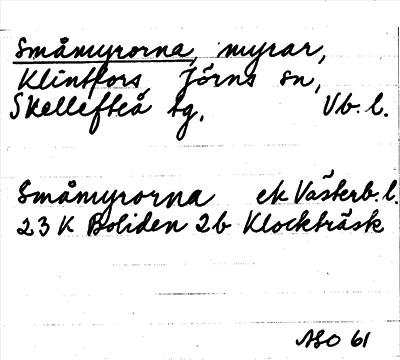 Småmyrorna, myrar,
Klintfors, Jörns sn,
Skellefteå tg. Vb. l.
Småmyrorna ek Västerb. l.
23 K Boliden 2b Klockträsk
ASO 61